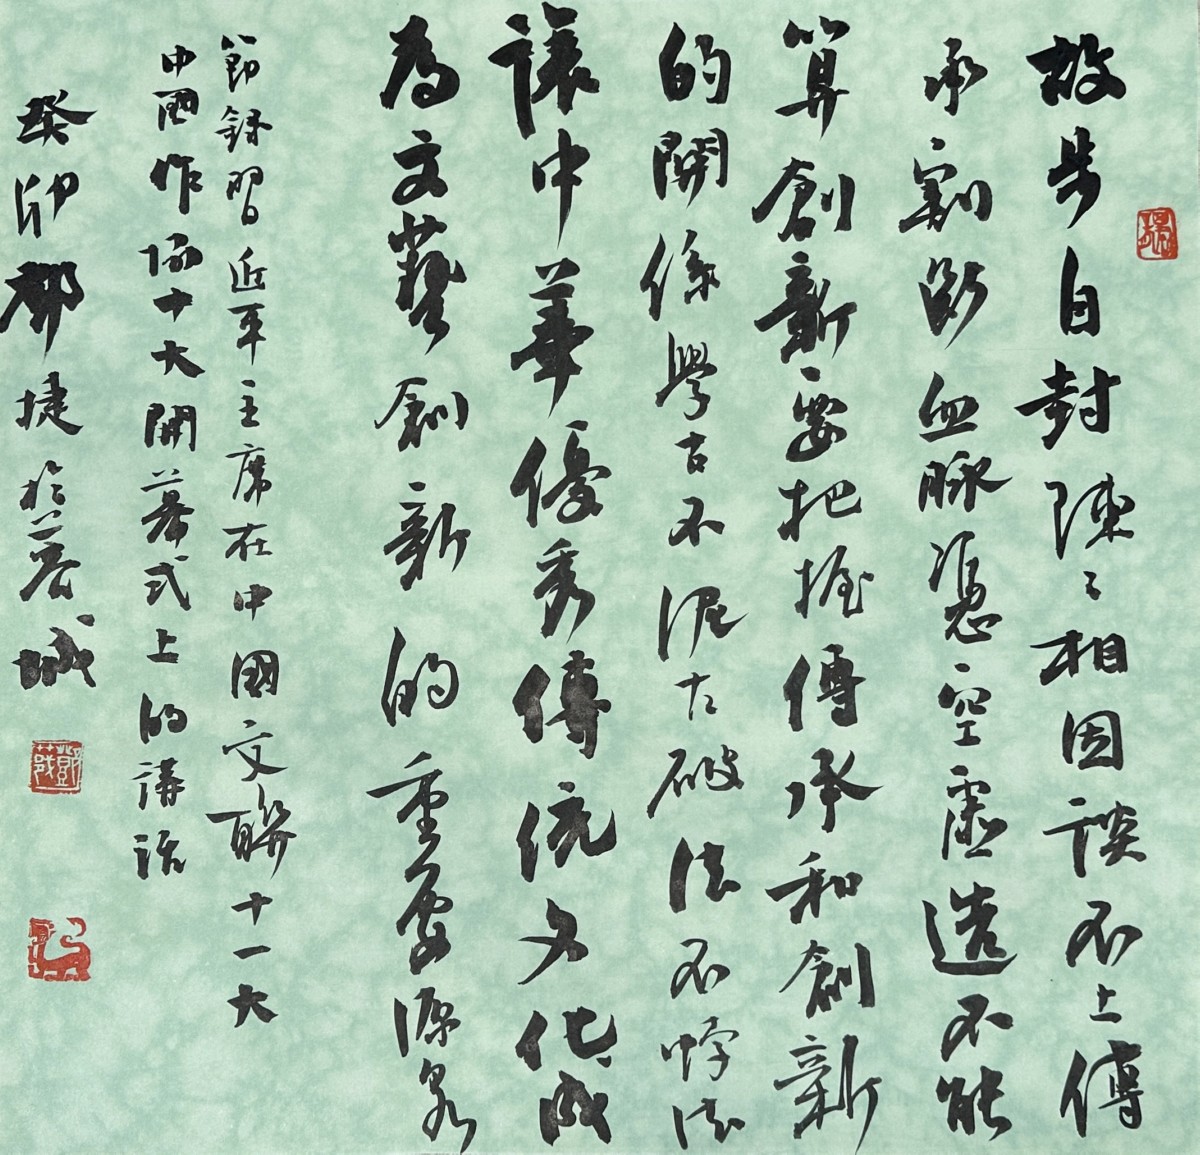 故步自封陳々相因談不上傳
承割斷血脉憑空虛造不能
算創新要把握傳承和創新
的關係學古不泥古破法不悖法
讓中華優秀傳統文化成
為文藝創新的重要源泉
節錄習近平主席在中國文聯十一大
中國作協十大開幕式上的講話
癸卯鄧捷於蓉城